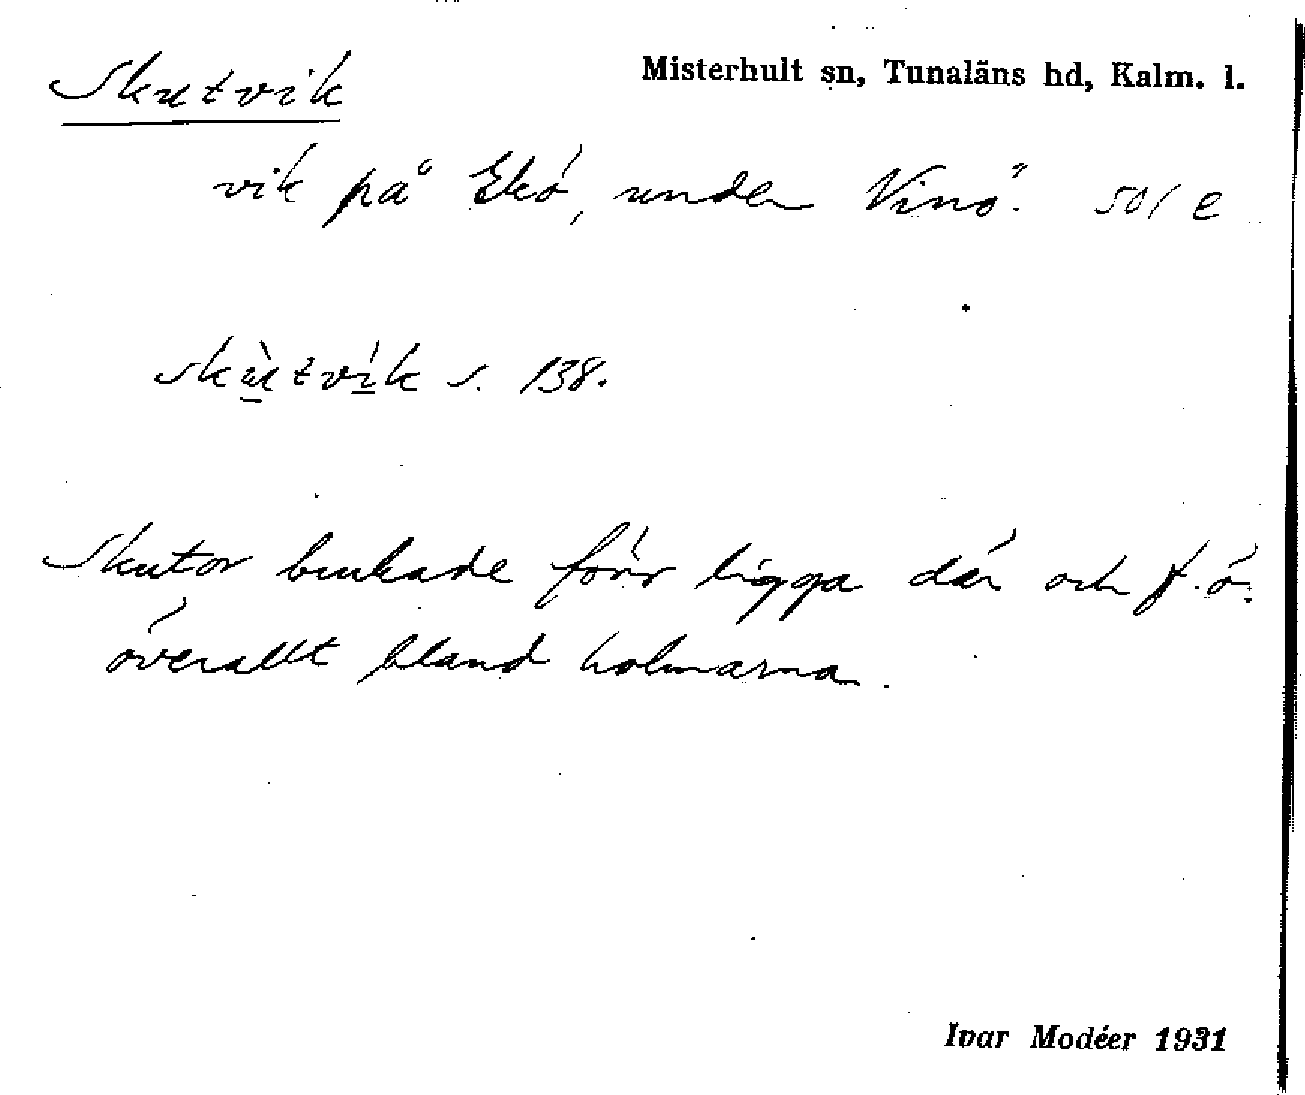 Skutvik
Misterhult sn, Tunaläns hd, Kalm. l.
vik på Ekö, under Vinö. 50/ e
skùtvík s. 138.
Skutor brukade förr ligga där och f. ö.
överallt bland holmarna.
Ivar Modéer 1931